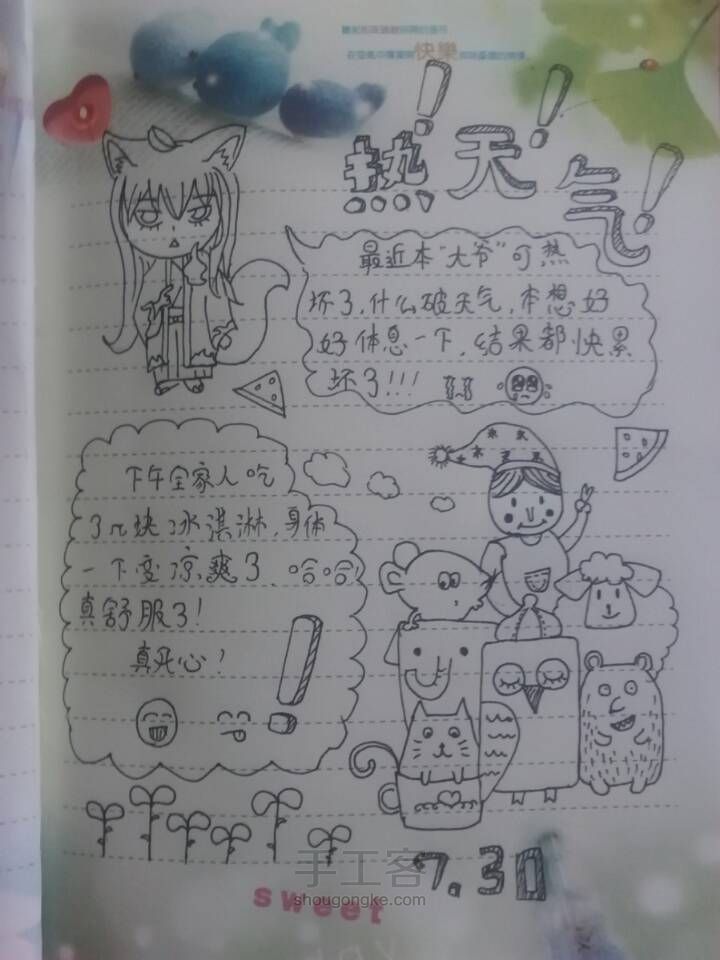 快樂
热!天!气!
最近本"大爷"可热
坏了,什么破天气,本想好
好休息一下,结果都快累
坏了!!!
下午全家人吃
了几块冰淇淋,身体
一下变凉爽了,哈哈!
真舒服了!
真死心!
7.30
手工客
shougongke.com
sweet